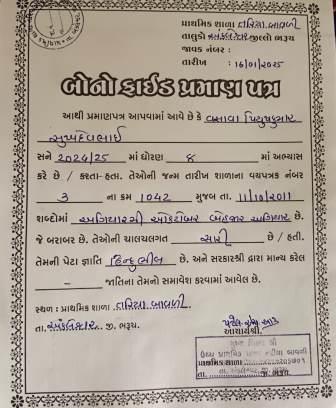 પ્રાથમિક શાળા દરિયા બાવળી
તાલુકો અંકલેશ્વર જીલ્લો ભરૂચ
જાવક નંબર :
તારીખ : 16/01/2025
બોનો ફાઈડ પ્રમાણ પત્ર
આથી પ્રમાણપત્ર આપવામાં આવે છે કે વસાવા પિયુષકુમાર
સુખદેવભાઈ
સને 2024/25 માં ધોરણ 8 માં અભ્યાસ
કરે છે / કરતા-હતા. તેઓની જન્મ તારીખ શાળાના વયપત્રક નંબર
3 ના ક્રમ 1042 મુજબ તા. 11/10/2011
શબ્દોમાં અગિયારમી ઓક્ટોબર બે હજાર અગિયાર છે.
જે બરાબર છે. તેઓની ચાલચલગત સારી છે / હતી.
તેમની પેટા જ્ઞાતિ હિન્દુ ભીલ છે. અને સરકારશ્રી દ્વારા માન્ય કરેલ
– જાતિના તેમનો સમાવેશ કરવામાં આવેલ છે.
સ્થળ : પ્રાથમિક શાળા
તા. અંકલેશ્વર. જી. ભરૂચ.
આચાર્યશ્રી.
પ્રાથમિક શાળા
તા. જી. ભરૂચ